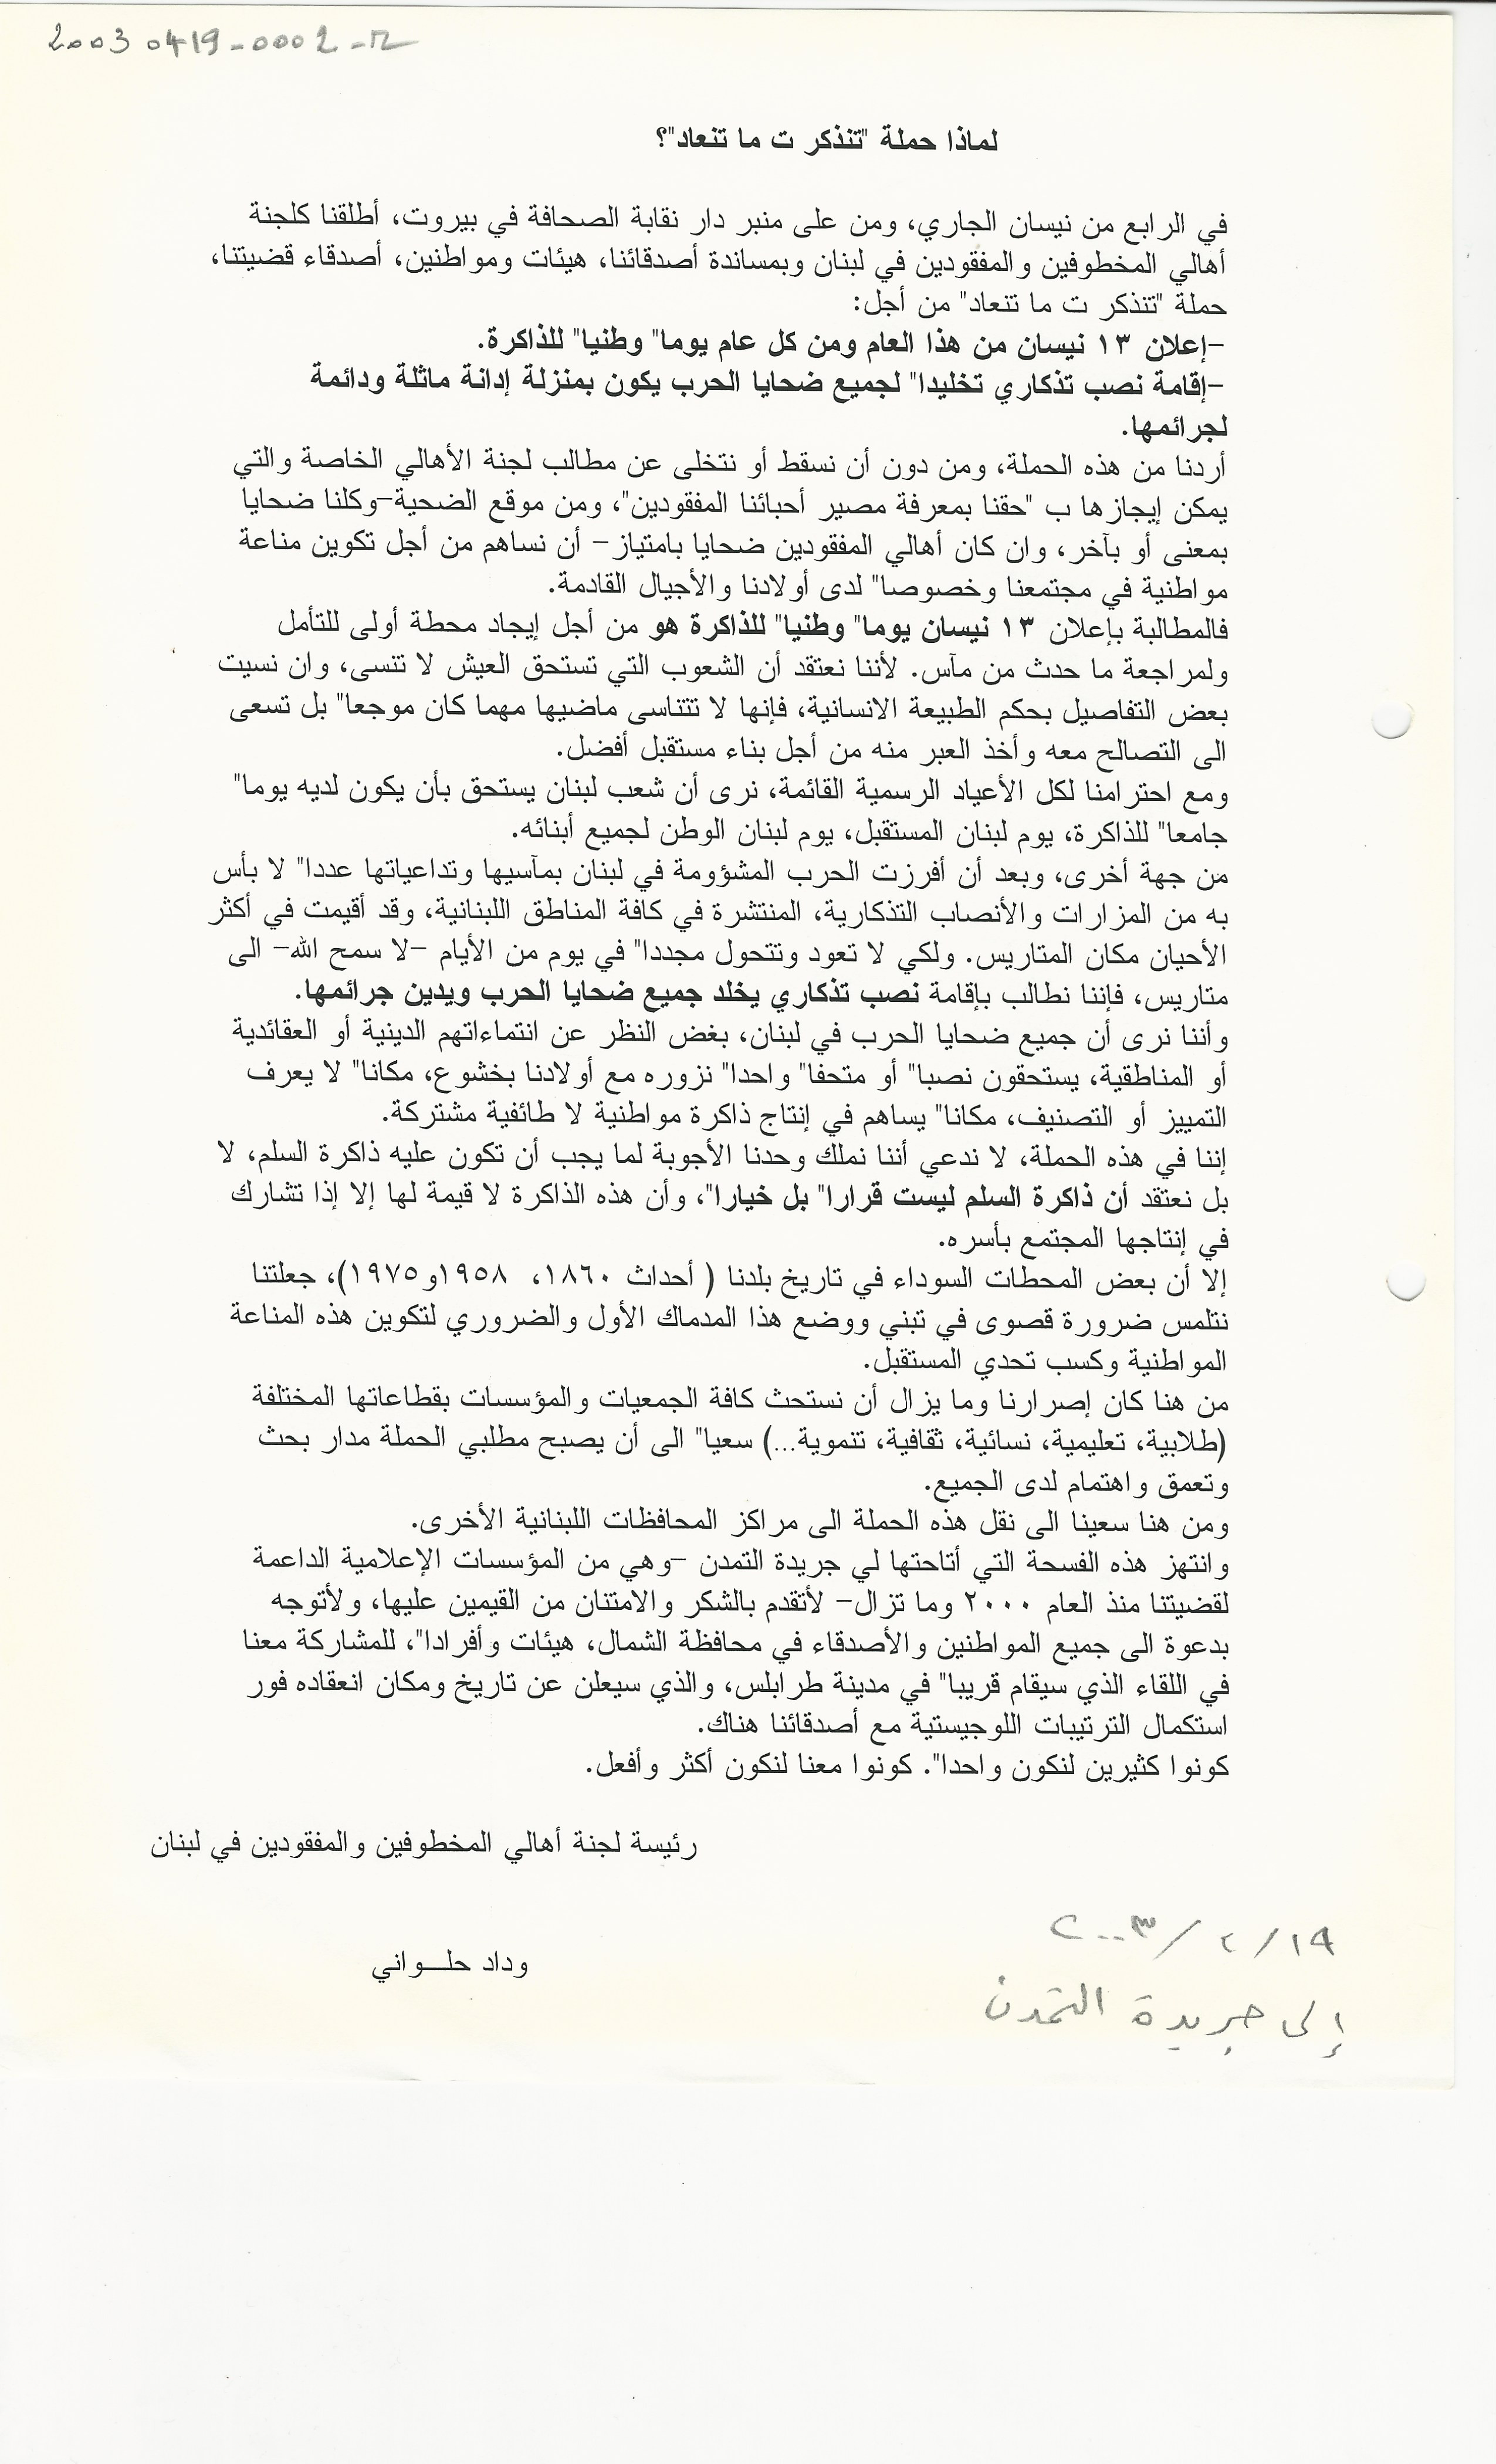 20030419-0002-
لماذا حملة "تنذكر ت ما تنعاد"؟
في الرابع من نيسان الجاري، ومن على منبر دار نقابة الصحافة في بيروت، أطلقنا كلجنة
أهالي المخطوفين والمفقودين في لبنان وبمساندة أصدقائنا، هيئات ومواطنين، أصدقاء قضيتنا،
حملة "تنذكر ت ما تنعاد" من أجل:
-إعلان ١٣ نيسان من هذا العام ومن كل عام يوما" وطنيا" للذاكرة.
-إقامة نصب تذكاري تخليدا" لجميع ضحايا الحرب يكون بمنزلة إدانة ماثلة ودائمة
لجرائمها.
أردنا من هذه الحملة، ومن دون أن نسقط أو نتخلى عن مطالب لجنة الأهالي الخاصة والتي
يمكن إيجازها ب "حقنا بمعرفة مصير أحبائنا المفقودين"، ومن موقع الضحية-وكلنا ضحايا
بمعنى أو بآخر، وان كان أهالي المفقودين ضحايا بامتياز- أن نساهم من أجل تكوين مناعة
مواطنية في مجتمعنا وخصوصا" لدى أولادنا والأجيال القادمة.
فالمطالبة بإعلان ١٣ نيسان يوما" وطنيا" للذاكرة هو من أجل إيجاد محطة أولى للتأمل
ولمراجعة ما حدث من مآس. لأننا نعتقد أن الشعوب التي تستحق العيش لا تنسى، وان نسيت
بعض التفاصيل بحكم الطبيعة الانسانية، فإنها لا تتناسى ماضيها مهما كان موجعا" بل تسعى
الى التصالح معه وأخذ العبر منه من أجل بناء مستقبل أفضل.
ومع احترامنا لكل الأعياد الرسمية القائمة، نرى أن شعب لبنان يستحق بأن يكون لديه يوما"
جامعا" للذاكرة، يوم لبنان المستقبل، يوم لبنان الوطن لجميع أبنائه.
من جهة أخرى، وبعد أن أفرزت الحرب المشؤومة في لبنان بمآسيها وتداعياتها عددا" لا بأس
به من المزارات والأنصاب التذكارية، المنتشرة في كافة المناطق اللبنانية، وقد أقيمت في أكثر
الأحيان مكان المتاريس. ولكي لا تعود وتتحول مجددا" في يوم من الأيام -لا سمح الله- الى
متاريس، فإننا نطالب بإقامة نصب تذكاري يخلد جميع ضحايا الحرب ويدين جرائمها.
وأننا نرى أن جميع ضحايا الحرب في لبنان، بغض النظر عن انتماءاتهم الدينية أو العقائدية
أو المناطقية، يستحقون نصبا" أو متحفا" واحدا" نزوره مع أولادنا بخشوع، مكانا" لا يعرف
التمييز أو التصنيف، مكانا" يساهم في إنتاج ذاكرة مواطنية لا طائفية مشتركة.
إننا في هذه الحملة، لا ندعي أننا نملك وحدنا الأجوبة لما يجب أن تكون عليه ذاكرة السلم، لا
بل نعتقد أن ذاكرة السلم ليست قرارا" بل خيارا"، وأن هذه الذاكرة لا قيمة لها إلا إذا تشارك
في إنتاجها المجتمع بأسره.
إلا أن بعض المحطات السوداء في تاريخ بلدنا ( أحداث ١٨٦٠، ١٩٥٨و١٩٧٥)، جعلتنا
نتلمس ضرورة قصوى في تبني ووضع هذا المدماك الأول والضروري لتكوين هذه المناعة
المواطنية وكسب تحدي المستقبل.
من هنا كان إصرارنا وما يزال أن نستحث كافة الجمعيات والمؤسسات بقطاعاتها المختلفة
(طلابية، تعليمية، نسائية، ثقافية، تنموية...) سعيا" الى أن يصبح مطلبي الحملة مدار بحث
وتعمق واهتمام لدى الجميع.
ومن هنا سعينا الى نقل هذه الحملة الى مراكز المحافظات اللبنانية الأخرى.
وانتهز هذه الفسحة التي أتاحتها لي جريدة التمدن -وهي من المؤسسات الإعلامية الداعمة
لقضيتنا منذ العام ٢٠٠٠ وما تزال- لأتقدم بالشكر والامتنان من القيمين عليها، ولأتوجه
بدعوة الى جميع المواطنين والأصدقاء في محافظة الشمال، هيئات وأفرادا"، للمشاركة معنا
في اللقاء الذي سيقام قريبا" في مدينة طرابلس، والذي سيعلن عن تاريخ ومكان انعقاده فور
استكمال الترتيبات اللوجيستية مع أصدقائنا هناك.
كونوا كثيرين لنكون واحدا". كونوا معنا لنكون أكثر وأفعل.
رئيسة لجنة أهالي المخطوفين والمفقودين في لبنان
١٩/٤/٢٠٠٣
وداد حلـــواني
إلى جريدة التمدن